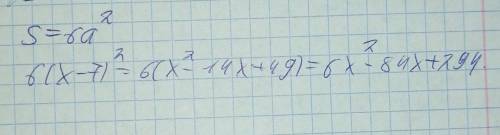 S=6a²
6(x-7)²=6(x²-14x+49)=6x²-84x+294